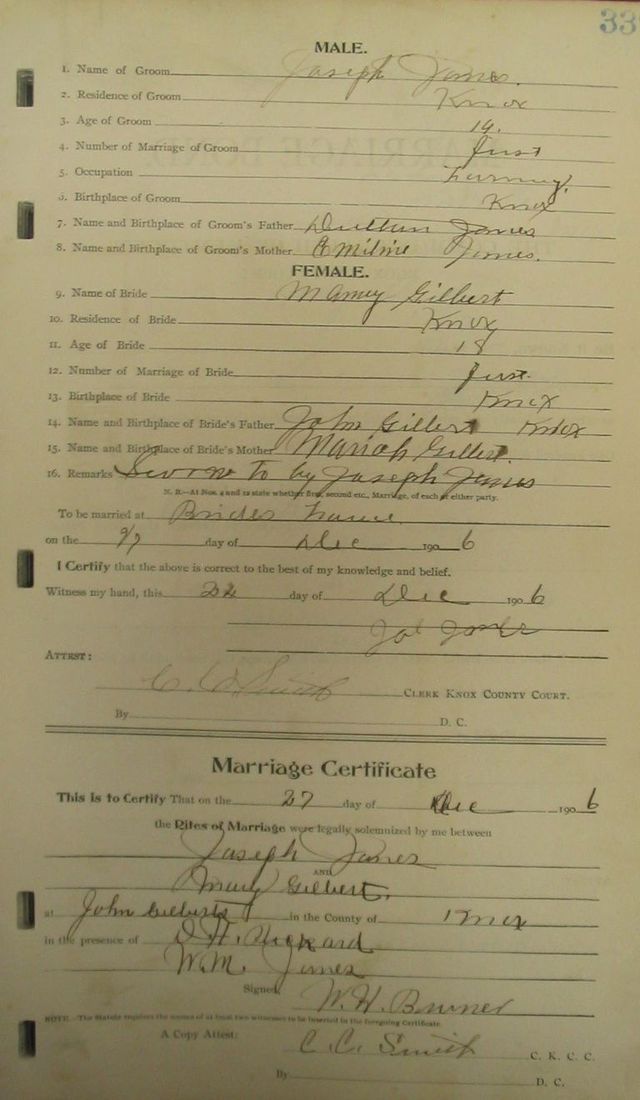 33
MALE.
1. Name of Groom Joseph Jones.
2. Residence of Groom Knox
3. Age of Groom 19.
4. Number of Marriage of Groom first
5. Occupation Farming.
6. Birthplace of Groom Knox
7. Name and Birthplace of Groom's Father Jones
8. Name and Birthplace of Groom's Mother Jones.
FEMALE.
9. Name of Bride Gilbert
10. Residence of Bride Knox
11. Age of Bride 18
12. Number of Marriage of Bride first.
13. Birthplace of Bride Knox
14. Name and Birthplace of Bride's Father John Gilbert Knox
15. Name and Birthplace of Bride's Mother Mariah Gilbert.
16. Remarks Sworn to by Joseph Jones
N. B.—At Nos. 4 and 12 state whether first, second etc., Marriage, of each or either party.
To be married at Brides home
on the 27 day of Dec 1906
I Certify that the above is correct to the best of my knowledge and belief.
Witness my hand, this 22 day of Dec 1906
Jos Jones
ATTEST:
C. C. Smith CLERK KNOX COUNTY COURT.
By D. C.
Marriage Certificate
This is to Certify That on the 27 day of Dec 1906
the Rites of Marriage were legally solemnized by me between
Joseph Jones
AND
Gilbert.
at John Gilberts in the County of Knox
in the presence of
W.M. Jones
Signed, W. H. Bruner
NOTE.—The Statute requires the names of at least two witnesses to be inserted in the foregoing Certificate.
A Copy Attest: C. C. Smith C. K. C. C.
By D. C.